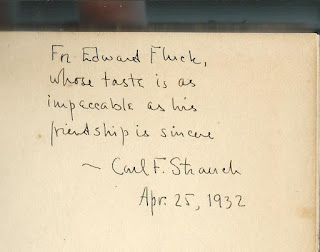 For Edward Fluck,
whose taste is as
impeccable as his
friendship is sincere
~ Carl F. Strauch
Apr. 25, 1932